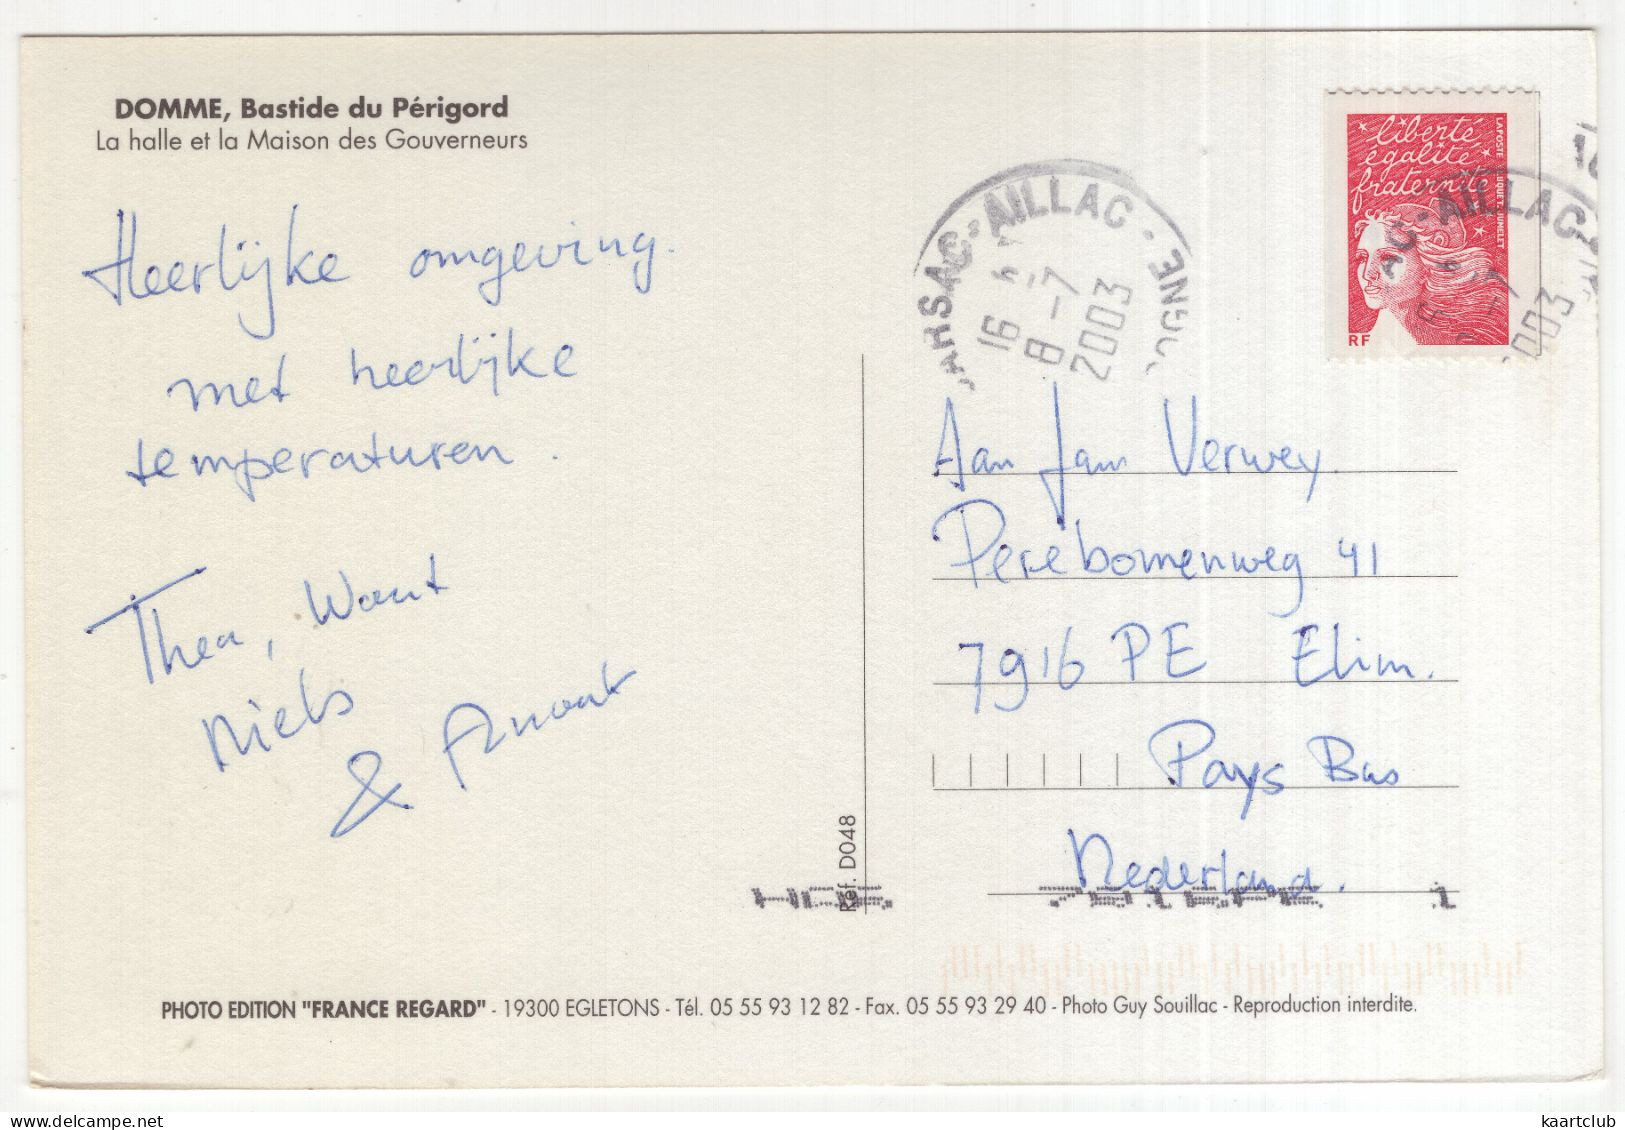 DOMME, Bastide du Périgord
La halle et la Maison des Gouverneurs
Heerlijke omgeving.
met heerlijke
temperaturen.
Thea, Wout
Niels
&
liberté
égalité
fraternité
LAPOSTE
RF
CARSAC-AILLAC -
16
8 -7
2003
AC-AILLAC
2003
Aan Jan Verwey.
Perebomenweg 41
7916 PE Elim.
Pays Bas
Nederland.
Réf. D048
PHOTO EDITION "FRANCE REGARD" - 19300 EGLETONS - Tél. 05 55 93 12 82 - Fax. 05 55 93 29 40 - Photo Guy Souillac - Reproduction interdite.
kaartclub